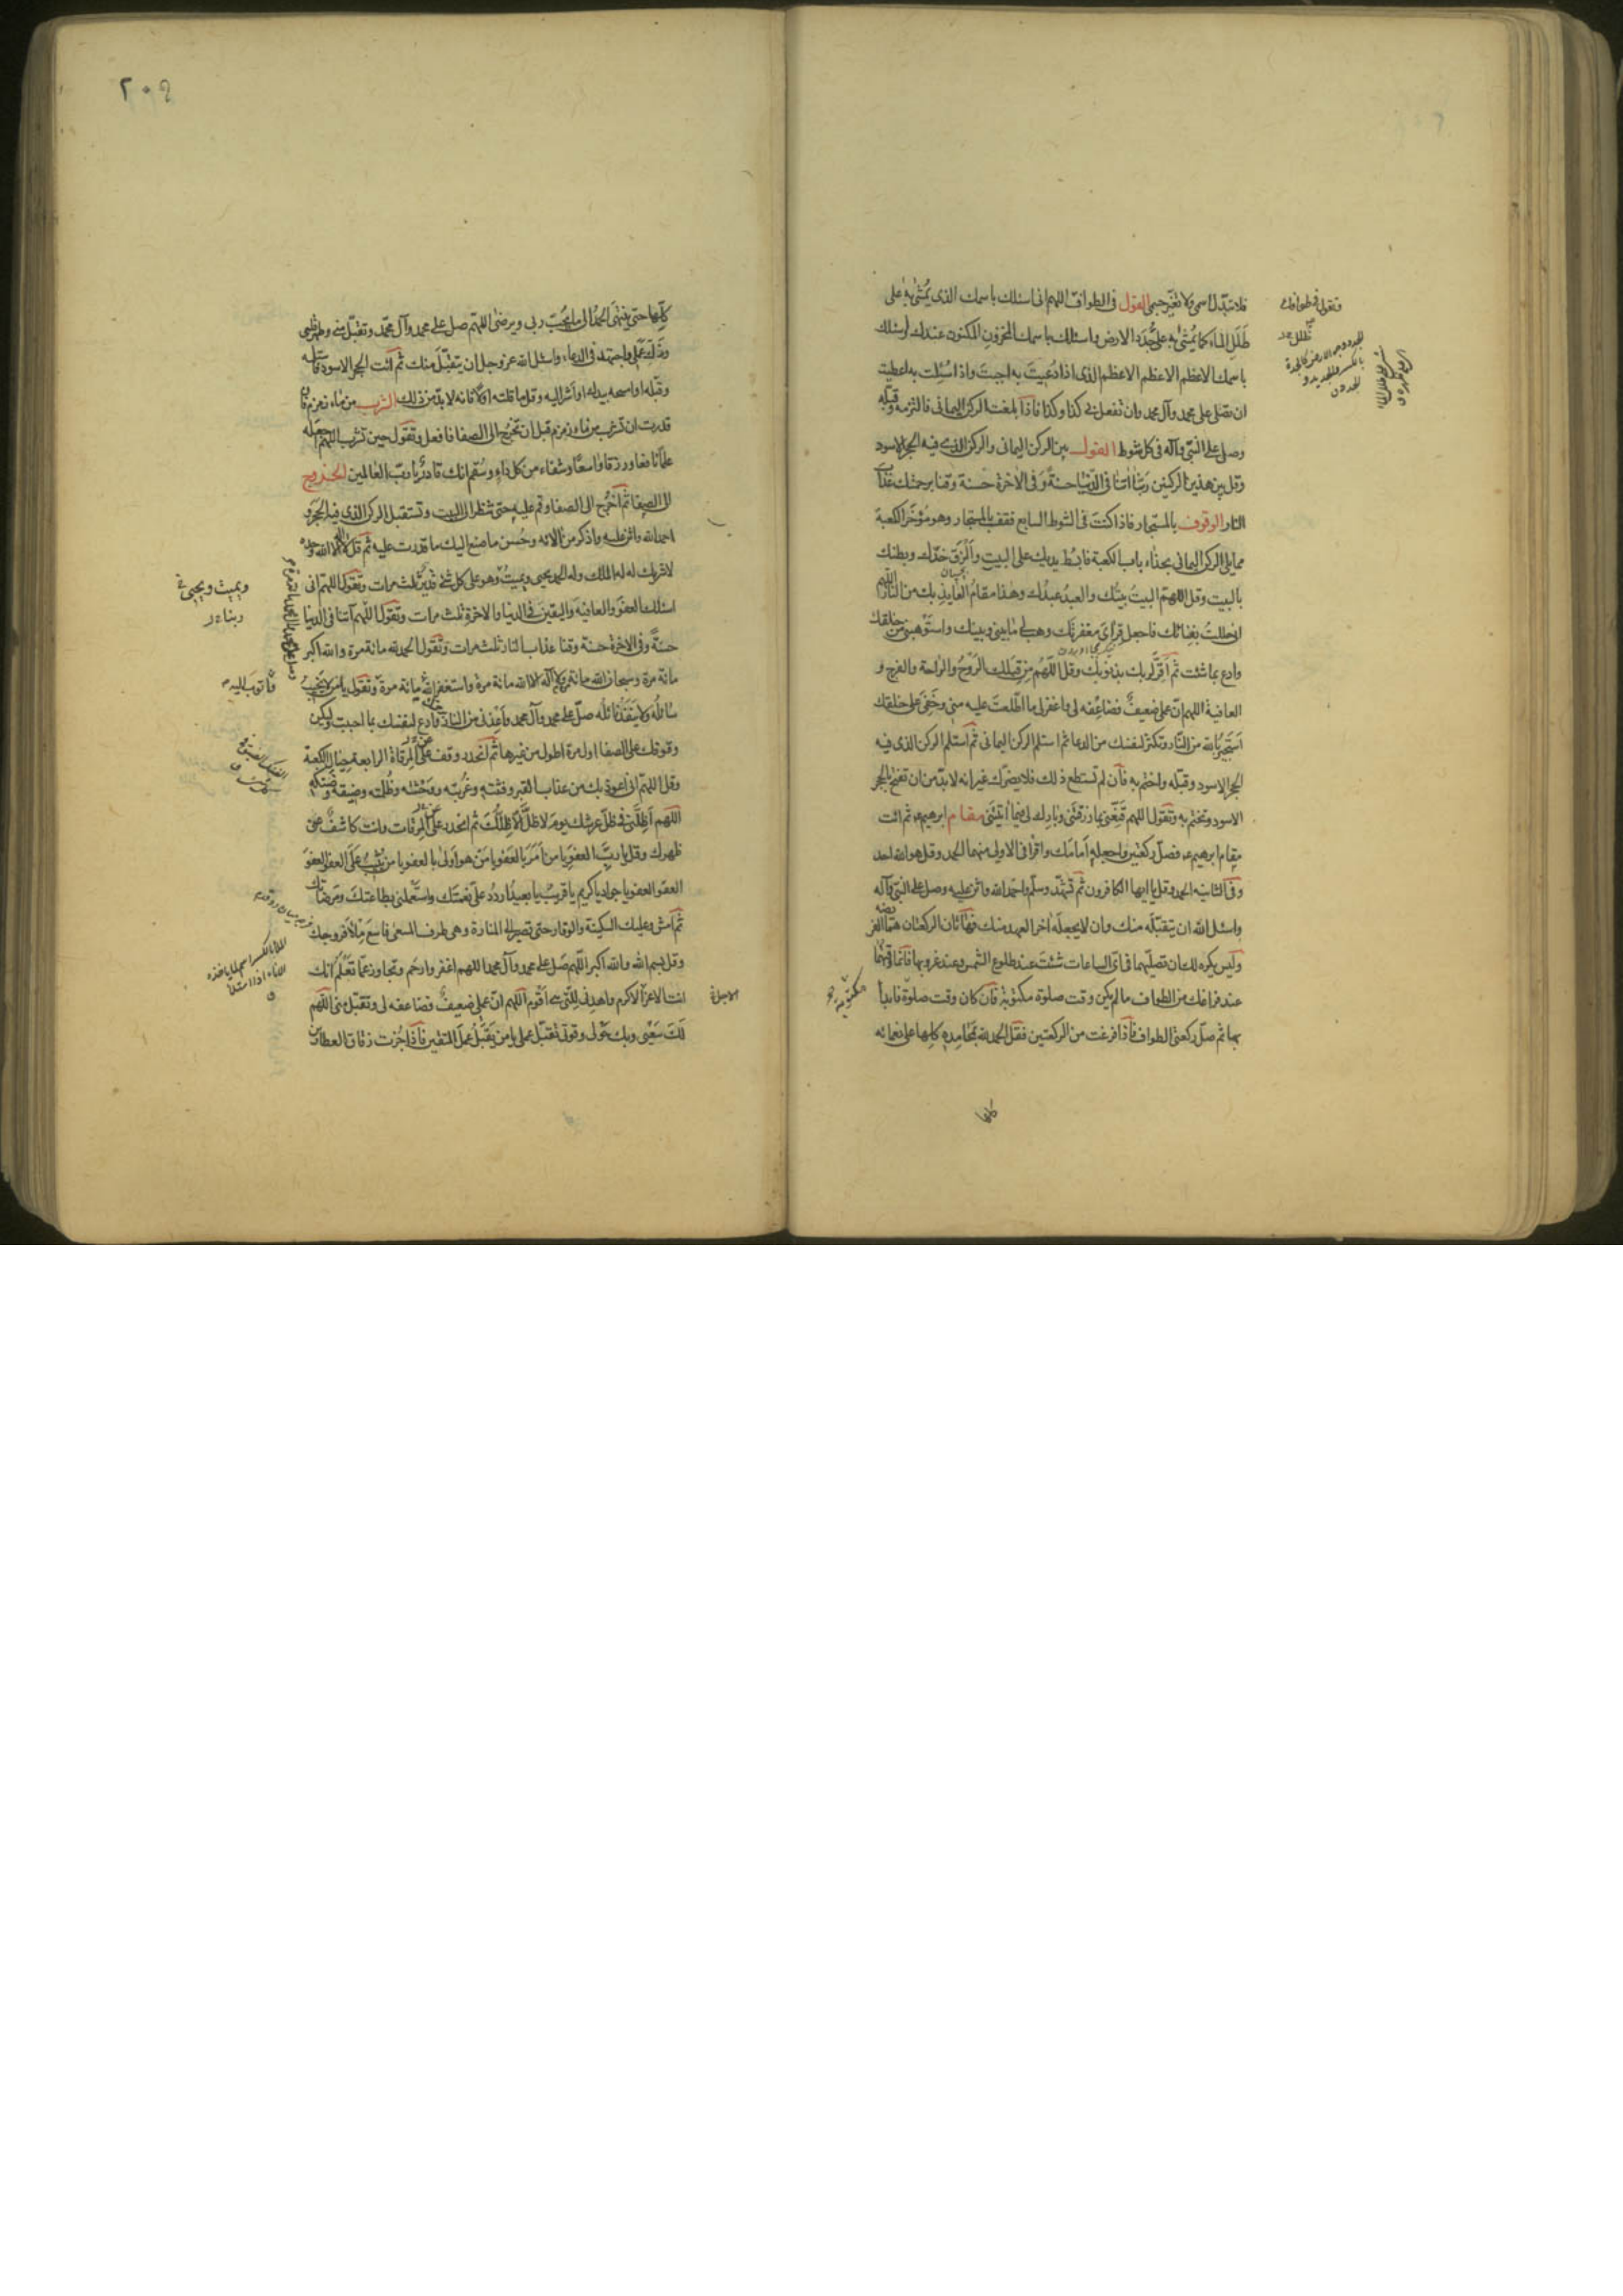 فلا تبدل اسمى ولا تغير جسمى القول فى الطواف اللهم انى اسئلك باسمك الذى يمشى به على
طلل الماء كما يمشى به على جدد الارض واسئلك باسمك المخزون المكنون عندك واسئلك
باسمك الاعظم الاعظم الاعظم الذى اذا دعيت به اجبت واذا سئلت به اعطيت
ان تصلى على محمد وآل محمد وان تفعل بى كذا وكذا فاذا بلغت الركن اليمانى فالتزمه وقبله
وصل على النبى وآله فى كل شوط القول بين الركن اليمانى والركن الذى فيه الحجر الاسود
وقل بين هذين الركنين ربنا اتنا فى الدنيا حسنة وفى الاخرة حسنة وقنا برحمتك عذاب
النار الوقوف بالمستجار فاذا كنت فى الشوط السابع فقف بالمستجار وهو مؤخر الكعبة
مما يلى الركن اليمانى بحذاء باب الكعبة فابسط يديك على البيت والزق خدك وبطنك
بالبيت وقل اللهم البيت بيتك والعبد عبدك وهذا مقام العايذ بك من النار اللهم
انى حللت بفنائك فاجعل قراى مغفرتك وهب لى ما بينى وبينك واستوهبنى من خلقك
وادع بما شئت ثم اقر لربك بذنوبك وقل اللهم من قبلك الروح والراحة والفرج و
العافية اللهم ان عملى ضعيف فضاعفه لى واغفر لى ما اطلعت عليه منى وخفى على خلقك
استجير بالله من النار وتكثر لنفسك من الدعا ثم استلم الركن اليمانى ثم استلم الركن الذى فيه
الحجر الاسود وقبله واختم به فان لم تستطع ذلك فلا يضرك غير انه لابد من ان تفتح بالحجر
الاسود وتختم به وتقول اللهم قنعنى بما رزقتنى وبارك لى فيما اتيتنى مقام ابرهيم ع ثم ائت
مقام ابرهيم ع فصل ركعتين واجعله امامك واقرا فى الاولى منهما الحمد وقل هو الله احد
وفى الثانيه الحمد وقل يا ايها الكافرون ثم تشهد وسلم واحمد الله واثن عليه وصل على النبى وآله
واسئل الله ان يتقبله منك وان لا يجعله اخر العهد منك فهاتان الركعتان هما الفريضه
وليس يكره لك ان تصليهما فى اى الساعات شئت عند طلوع الشمس وعند غروبها فانما وقتهما
عند فراغك من الطواف ما لم يكن وقت صلوة مكتوبة فان كان وقت صلوة فابدا
بها ثم صل ركعتى الطواف فاذا فرغت من الركعتين فقل الحمد لله بمحامده كلها على نعمائه
كلها
وتقول فى طوافك
٢٠٩
كلها حتى ينتهى الحمد الى ما يحب ربى ويرضى اللهم صل على محمد وآل محمد وتقبل منى وطهر قلبى
وزك عملى واجتهد فى الدعاء واسئل الله عز وجل ان يتقبل منك ثم ائت الحجر الاسود فاستلمه
وقبله او امسحه بيدك او اشر اليه وقل ما قلته اولا فانه لابد من ذلك الشرب من ماء زمزم فان
قدرت ان تشرب من ماء زمزم قبل ان تخرج الى الصفا فافعل وتقول حين تشرب اللهم اجعله
علما نافعا ورزقا واسعا وشفاء من كل داء وسقم انك قادر يا رب العالمين الخروج
الى الصفا ثم اخرج الى الصفا وقم عليه حتى تنظر الى البيت وتستقبل الركن الذى فيه الحجر و
احمد الله واثن عليه واذكر من الائه وحسن ما صنع اليك ما قدرت عليه ثم قل لا اله الا الله وحده
لا شريك له له الملك وله الحمد يحيى ويميت وهو على كل شئ قدير ثلث مرات وتقول اللهم انى
اسئلك العفو والعافية واليقين فى الدنيا والاخرة ثلث مرات وتقول اللهم آتنا فى الدنيا
حسنة وفى الاخرة حسنة وقنا عذاب النار ثلث مرات وتقول الحمد لله مائة مرة والله اكبر
مائة مرة وسبحان الله مائة مرة ولا اله الا الله مائة مرة واستغفر الله مائة مرة وتقول يا من لا يخيب
سائله ولا ينفد نائله صل على محمد وآل محمد واعذنى من النار وادع لنفسك بما احببت وليكن
وقوفك على الصفا اول مرة اطول من غيرها ثم انحدر وقف على المرقاة الرابعة حيال الكعبة
وقل اللهم انى اعوذ بك من عذاب القبر وفتنته وغربته ووحشته وظلمته وضيقه وضنكه
اللهم اظلنى فى ظل عرشك يوم لا ظل الا ظلك ثم انحدر عن المرقات وانت كاشف عن
ظهرك وقل يا رب العفو يا من امر بالعفو يا من هو اولى بالعفو يا من يثيب على العفو العفو
العفو العفو يا جواد يا كريم يا قريب يا بعيد اردد على نعمتك واستعملنى بطاعتك ومرضاتك
ثم امش وعليك السكينة والوقار حتى تصير الى المنارة وهى طرف المسعى فاسع ملأ فروجك
وقل بسم الله والله اكبر اللهم صل على محمد وآل محمد اللهم اغفر وارحم وتجاوز عما تعلم انك
انت الاعز الاكرم واهدنى للتى هى اقوم اللهم ان عملى ضعيف فضاعفه لى وتقبل منى اللهم
لك سعيى وبك حولى وقوتى تقبل عملى يا من يقبل عمل المتقين فاذا جزت زقاق العطارين
ويميت ويحيى
واتوب اليه